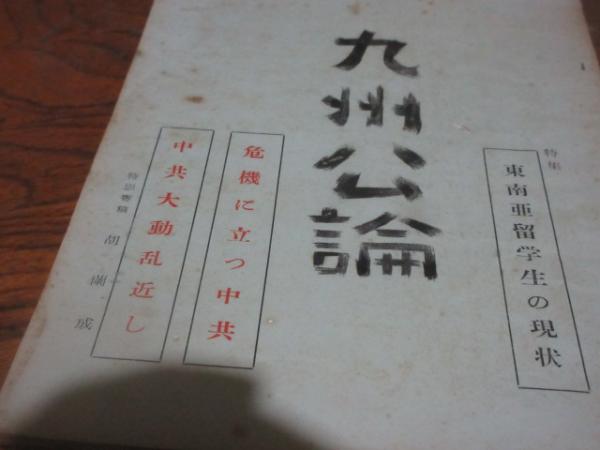 九州公論
特集
東南亜留学生の現状
危機に立つ中共
中共大動乱近し
特別寄稿 胡蘭成